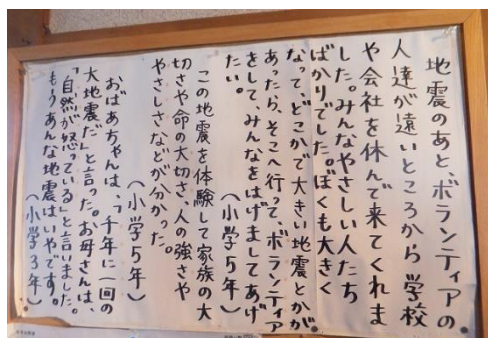 地震のあと、ボランティアの
人達が遠いところから学校
や会社を休んで来てくれま
した。みんなやさしい人たち
ばかりでした。ぼくも大きく
なって、どこかで大きい地震とかが
あったら、そこへ行って、ボランティア
をして、みんなをはげましてあげ
たい。
(小学5年)
この地震を体験して家族の大
切さや命の大切さ、人の強さや
やさしさなどが分かった。
(小学5年)
おばあちゃんは、「千年に一回の
大地震だ」と言った。お母さんは、
「自然が怒っている」と言いました。
もうあんな地震はいやです。
(小学3年)